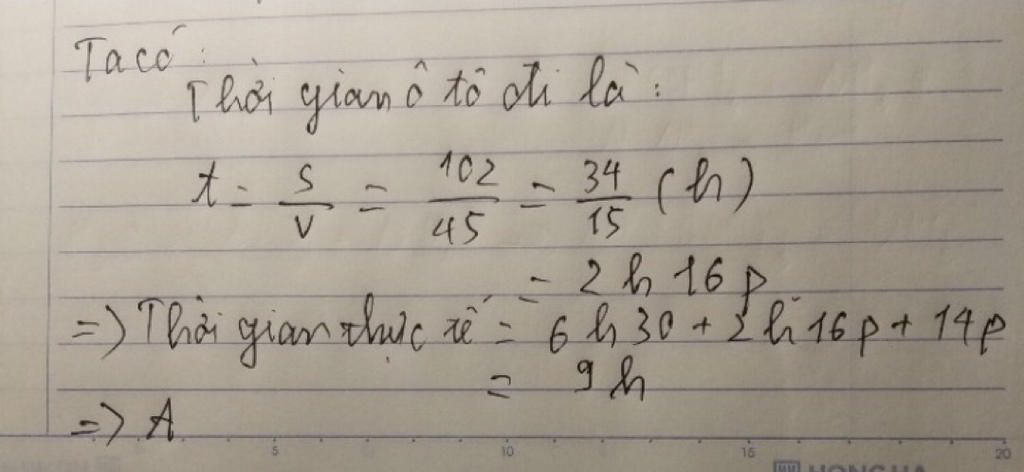 Ta có:
Thời gian ô tô đi là:
t = s/v = 102/45 = 34/15 (h)
= 2h 16p
=> Thời gian thực tế = 6h30 + 2h16p + 14p
= 9h
=> A
5 10 15 20
HONG HA